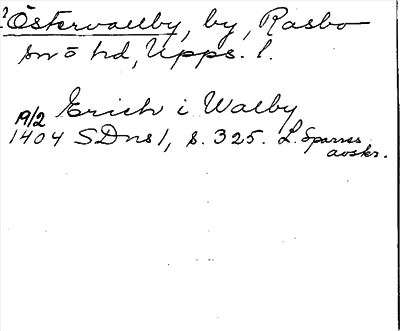 ? Östervallby, by, Rasbo
sn ö hd, Upps. l.
Erich i Walby
19/2
1404 SDns 1, s. 325. L. Sparres
avskr.